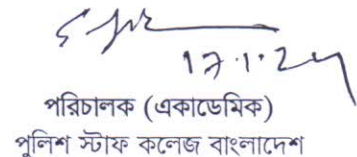 17.1.24
পরিচালক (একাডেমিক)
পুলিশ স্টাফ কলেজ বাংলাদেশ